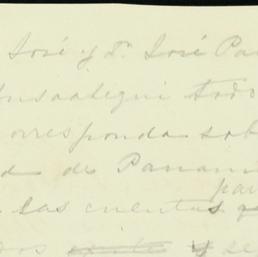 José y Dn José Pa
Ansaategui todo
orresponda sob
d de Panam
par
las cuentas
se